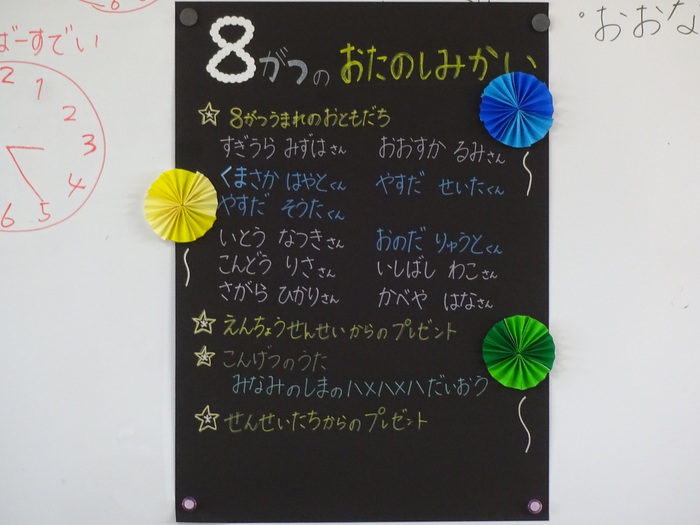 8がつのおたのしみかい
☆8がつうまれのおともだち
すぎうら みずはさん おおすか るみさん
くまさか はやとくん やすだ せいたくん
やすだ そうたくん
いとう なつきさん おのだ りゅうとくん
こんどう りささん いしばし わこさん
さがら ひかりさん かべや はなさん
☆えんちょうせんせいからのプレゼント
☆こんげつのうた
みなみのしまのハメハメハだいおう
☆せんせいたちからのプレゼント
ばーすでい
2 1
2
3
4
5
6
・おおな